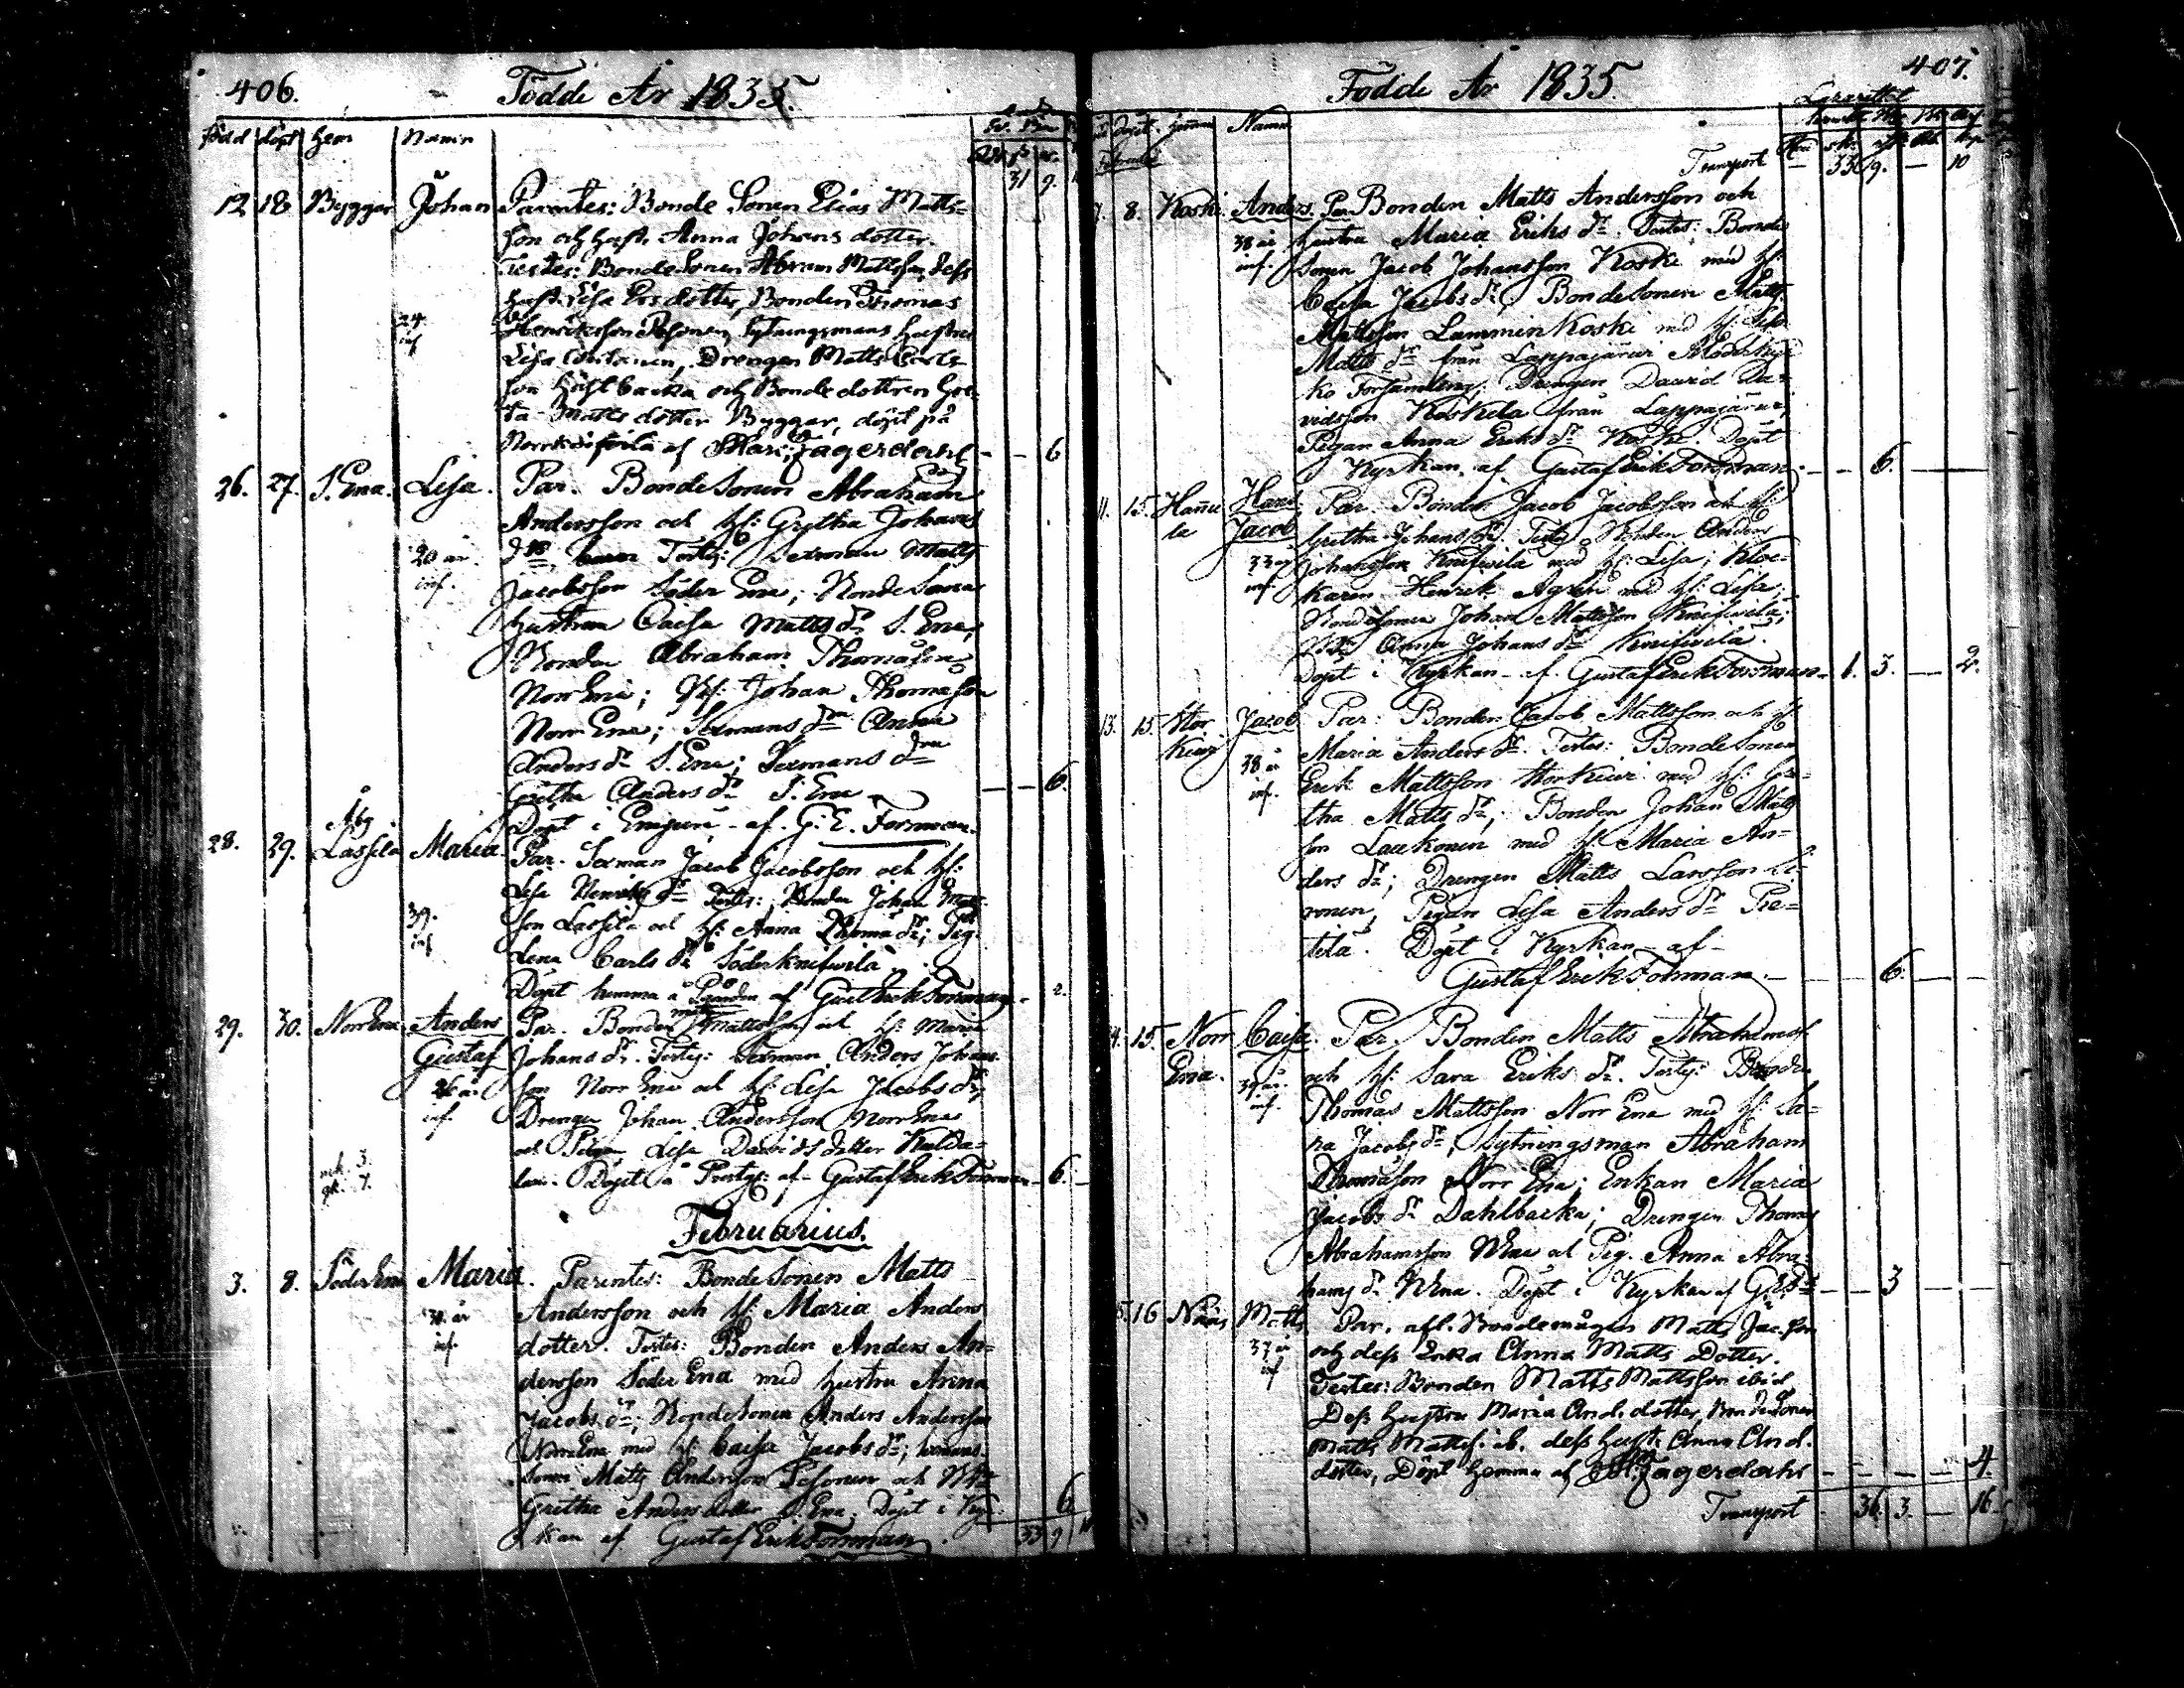 406.
Födde År 1835.
född döpt Hem Namn
31 9.
12 18 Byggar Johan Parentes: Bonde Sonen Elias Matts-
son och hust. Anna Johans dotter.
Testes: Bonde Sonen Abram Mattsson, dess
hust. Lisa Ersdotter, Bonden Thomas
24 Henriksson Pesonen, Sytningsmans hustru
inf
Lisa, Drengen Matts Carls-
son Höglbacka och Bonde dottren Gre-
ta Matts dotter Byggar, döpt på
af Fagerdahl — — 6
26. 27. S. Ena. Lisa. Par. Bonde Sonen Abraham
Andersson och H: Gretha Johans
20 år dr. Testes: Sexman Matts
inf. Jacobsson Söder Ena; Bonde Sonens
hustrun Caisa Matts dr S. Ena,
Bonden Abraham Thomasson
Norr Ena; Johan Thomasson
Norr Ena; Sexmans dr Anna
Anders dr S. Ena; Sexmans dr
Gretha Anders dr S. Ena — — 6.
Döpt i af G. E. Forsman.
28. 29. Lassila Maria. Par. Sexman Jacob Jacobsson och H:
Lisa Henriks dr Testes: Bonden Johan Matts-
39. son Lassila och H: Anna Thomæ dr; Pig.
inf
Lena Carls dr Söderknifvilä
Döpt hemma af Gust Erik Forsman 2.
29. 30. Norr Ena Anders Par. Bonden Matts Mattsson och H: Maria
Gustaf Johans dr. Testes: Sexman Anders Johans-
26 år son Norr Ena och H: Lisa Jacobs dr,
inf. Drengen Johan Andersson Norr Ena
och Pigan Lisa Davids dotter Kulda-
mk. 3.
qk. 7. Döpt å Prestg: af Gustaf Erik Forsman — 6. —
Februarius.
3. 8. Söder Ena Maria. Parentes: Bonde Sonen Matts
Andersson och H: Maria Anders
30 år
inf. dotter. Testes: Bonden Anders An-
dersson Söder Ena med hustru Anna
Jacobs dr; Bonde Sonen Anders Andersson
Norr Ena med H: Caisa Jacobs dr;
Sonen Matts Andersson Pesonen och
Gretha Anders dotter S. Ena. Döpt i Kyr-
kan af Gustaf Erik Forsman. 6
33 9
407.
Födde År 1835.
Döpt. Hemm Namn
Februarii
Transport — 33 9. — 10
7. 8. Koski. Anders. Par Bonden Matts Andersson och
38 år hustru Maria Eriks dr. Testes: Bonde
inf. Sonen Jacob Johansson Koski med H:
Caisa Jacobs dr; Bonde Sonen Matts
Mattsson Lamminkoski med H: Lisa
Matts dr från Lappajärvi Moderkyr-
ko Församling; Drengen David Da-
vidsson Koskela från Lappajärvi;
Pigan Anna Eriks dr Koski. Döpt
Kyrkan af Gustaf Erik Forsman. — — 6. — —
11. 15. Hannu Hans Par. Bonden Jacob Jacobsson och H:
la Jacob Gretha Johans dr. Testes Bonden Anders
33 år Johansson Knifvilä med H: Lisa; Kloc-
inf. karen Henrik Agren med H: Lisa;
Bonde Sonen Johan Mattsson Knifvilä;
Anna Johans dr Knifvilä.
Döpt i Kyrkan af Gustaf Erik Forsman — 1. 3. — 2.
13. 15. Stor Jacob Par: Bonden Jacob Mattsson och H:
kiwi Maria Anders dr. Testes: Bonde Sonen
38 år Erik Mattsson Storkiwi med H: Gre-
inf. tha Matts dr; Bonden Johan Matts
son Laukonen med H: Maria An-
ders dr; Drengen Matts Larsson
Pigan Lisa Anders dr Pie-
tilä. Döpt i Kyrkan af
Gustaf Erik Forsman. — — 6. — —
14. 15. Norr Caisa. Par. Bonden Matts Abrahamss
Ena. 39 år. och H: Sara Eriks dr. Testes: Bonden
inf. Thomas Mattsson Norr Ena med H:
Jacobs dr; Sytningsman Abraham
Thomasson Norr Ena; Enkan Maria
Jacobs dr Dahlbacka; Drengen Thomas
Abrahamsson N Ena och Pig. Anna Abra-
hams dr N Ena. Döpt i Kyrkan af — — 3 — —
15. 16 Näs Matts Par. afl. Bondemågen Matts Jac.son
37 år och dess Enka Anna Matts Dotter.
inf Testes: Bonden Matts Mattsson ibid
Dess hustru Maria And. dotter, Bonde Sonen
Matts Mattss. ib. dess hust. Anna And.
dotter, Döpt hemma af Fagerdahl — — — — 4.
Transport 36. 3. — 16.